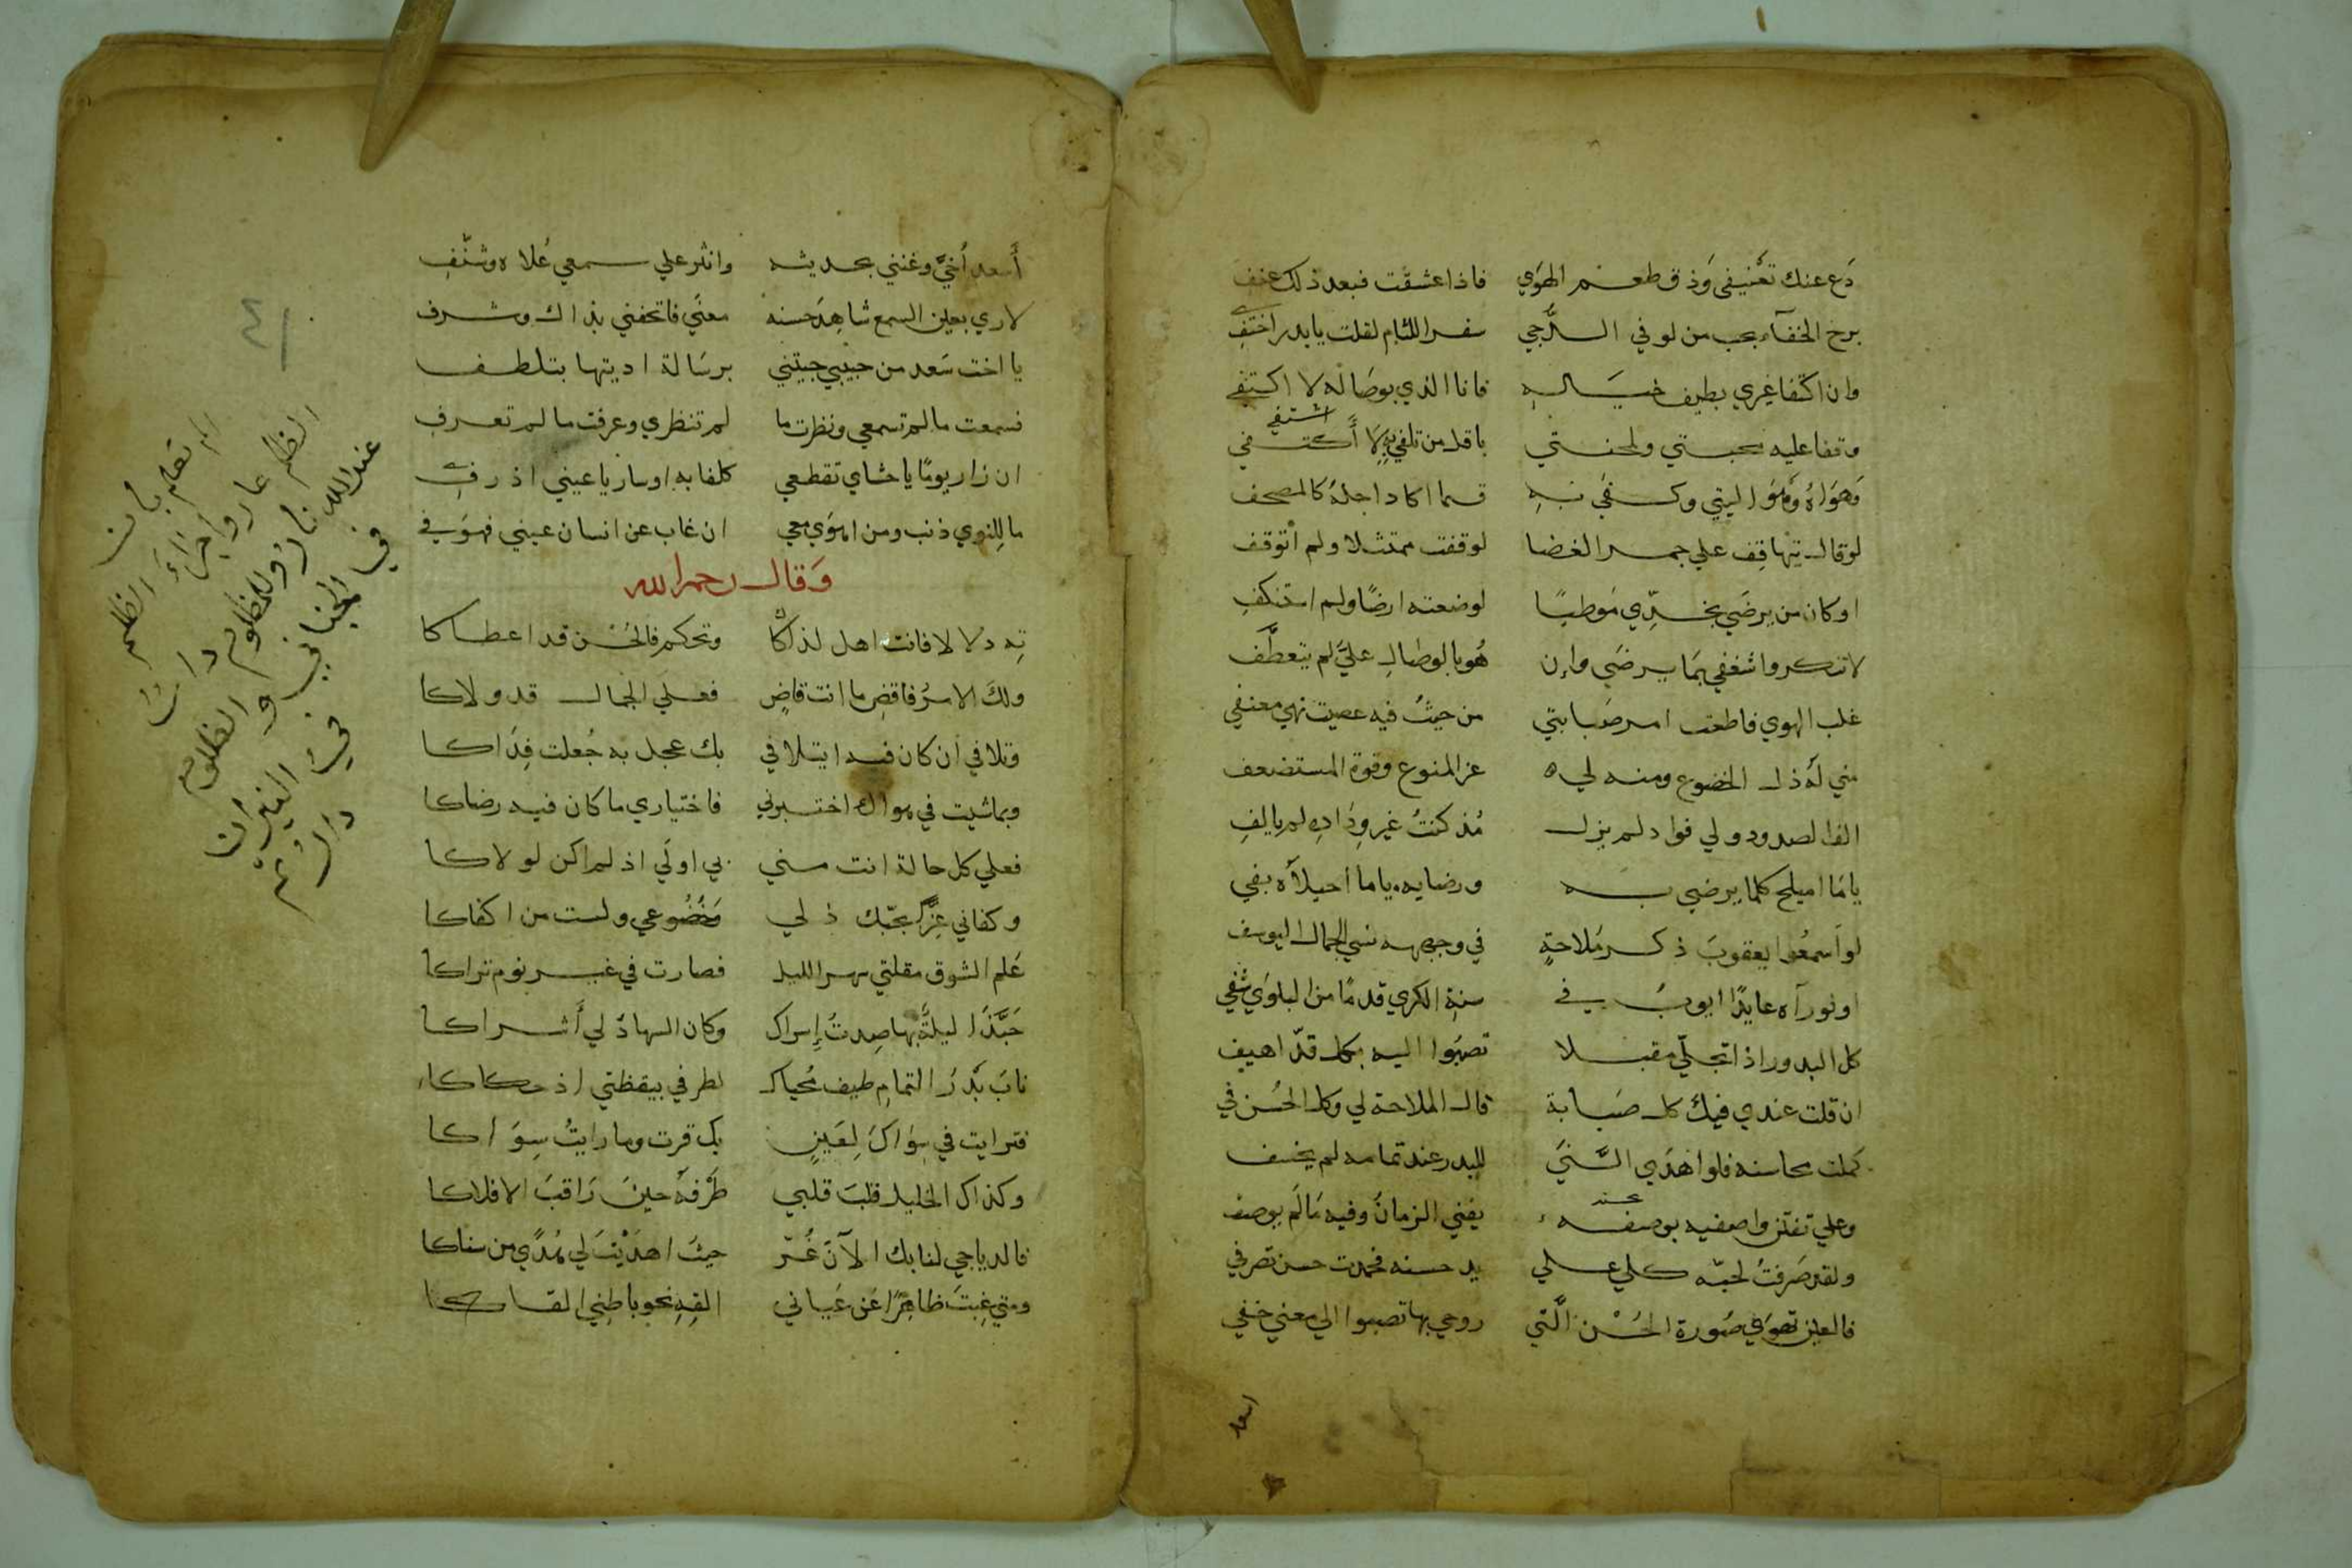 دَع عنك تعنيفي وَذق طعم الهوَي فاذا عشقت فبعد ذلك عنف
برح الخفآء بحب من لو في الدُّجي سفر اللثام لقلت يا بدر اختفِ
وان اكتفا غيري بطيف خيَالهِ فانا الذي بوصَاله لا اكتفي
وقفا عليه محبتي ولمحنتي باقل من تلفي بهِ لَا أَشتفي
وَهوَاهُ وَهوَ اليتي وكفَي بهِ قسما اكاد اجلهُ كالمصحف
لو قال تيها قِف علي جمر الغضا لوقفت ممتثلا ولم اتوقف
او كان من يرضَي بخدِّي مَوطيًا لوضعته ارضًا ولم استنكفِ
لا تنكروا شغفي بمَا يرضَي وإن هُو بالوصَال عليَّ لم يتعطَّف
غلب الهوي فاطعت امر صَبابتي من حيثُ فيه عصيت نهي معنفي
مني لَهُ ذل الخضوع ومنه لي عز المنوع وقوة المستضعف
الف الصدود ولي فواد لم يزل مُذ كنتُ غير وِدَادِهِ لم يالفِ
يا مَا اميلح كلما يرضي به ورضابه يا ما احيلَاه بفي
لو اَسمعُوا يعقوبَ ذكر مَلاحةٍ في وجهه نسي الجمال اليوسفي
او لو رآه عايدًا ايوبُ في سنةِ الكري قدمًا من البلوَي شُفي
كل البدور اذا تجلَّي مقبلا تصبَوا اليه بكل قدّ اهيفِ
ان قلت عندي فيك كل صَبابة قال الملاحة لي وكل الحُسن في
كملت محاسنه فلو اهدَي السَّنَي للبدر عند تمامه لم يخسف
وعلي تفنن واصفيه بوصفه يفني الزمانُ وفيه مَا لَم يوصف
ولقد صَرفتُ لحبّه كلي علي يد حسنه فحمدت حسن تصرفي
فالعين تهوَي صُورة الحُسْن الَّتي روحي بها تصبوا الي معني خفي
اسعد
أَسعد اُخَيَّ وغنني بحديثه وانثر علي سمعي حُلاه وشنّفِ
لاري بعين السمع شاهِدَ حسنه معنَي فاتحفني بذاك وشرف
يا اخت سَعد من حبيبي جيتني برسَالة اديتها بتلطف
فسمعت ما لم تسمعي ونظرت ما لم تنظري وعرفت ما لم تعرفِ
ان زار يومًا يا حشاي تقطعي كلفا به او سار يا عيني اذرفي
ما للنوي ذنب ومن اهوَي معي ان غاب عن انسان عيني فهوَ في
وَقال رحمه الله
تِه دلالا فانت اهل لذاكا وتحكم فالحُسْن قد اعطاكا
ولكَ الامرُ فاقضِ ما انت قاضٍ فعلَي الجمال قد ولاكا
وتلافي ان كان فيه ايتلافي بك عجل به جُعلت فِدَاكا
وبما شيت في هواك اختبرني فاختياري ما كان فيه رضاكا
فعلي كل حالة انت مني بي اولَي اذ لم اكن لولاكا
وكفاني عِزًّا بحبّك ذلي وَخُضُوعي ولست من اكفاكا
عَلم الشوق مقلتي سهر الليل فصارت في غير نوم تراكا
حَبَّذَا ليلةٌ بها صِدتُ إِسراك وكان السهادُ لي أَشراكا
نابَ بَدرُ التمامِ طيف مُحياك لطرفي بيقظتي اذ حكاكا
فترايت في سِوَاكَ لِعَينٍ بك قرت وما رايتُ سِوَاكا
وكذاك الخليل قلبَ قلبي طَرْفَهُ حينَ رَاقبَ الافلاكا
فالدياجي لنا بك الآنَ غُرّ حيثُ اهدَيْتَ لي هُدًي من سناكا
ومتي غِبتَ ظاهِرًا عَن عَياني القِهِ نحو باطني القاكا
الم تعلم بان الظلم
الظلم عار وجزاء
عند الله نار وللمظلوم دار
في الجنان و الظلوم
في النيران